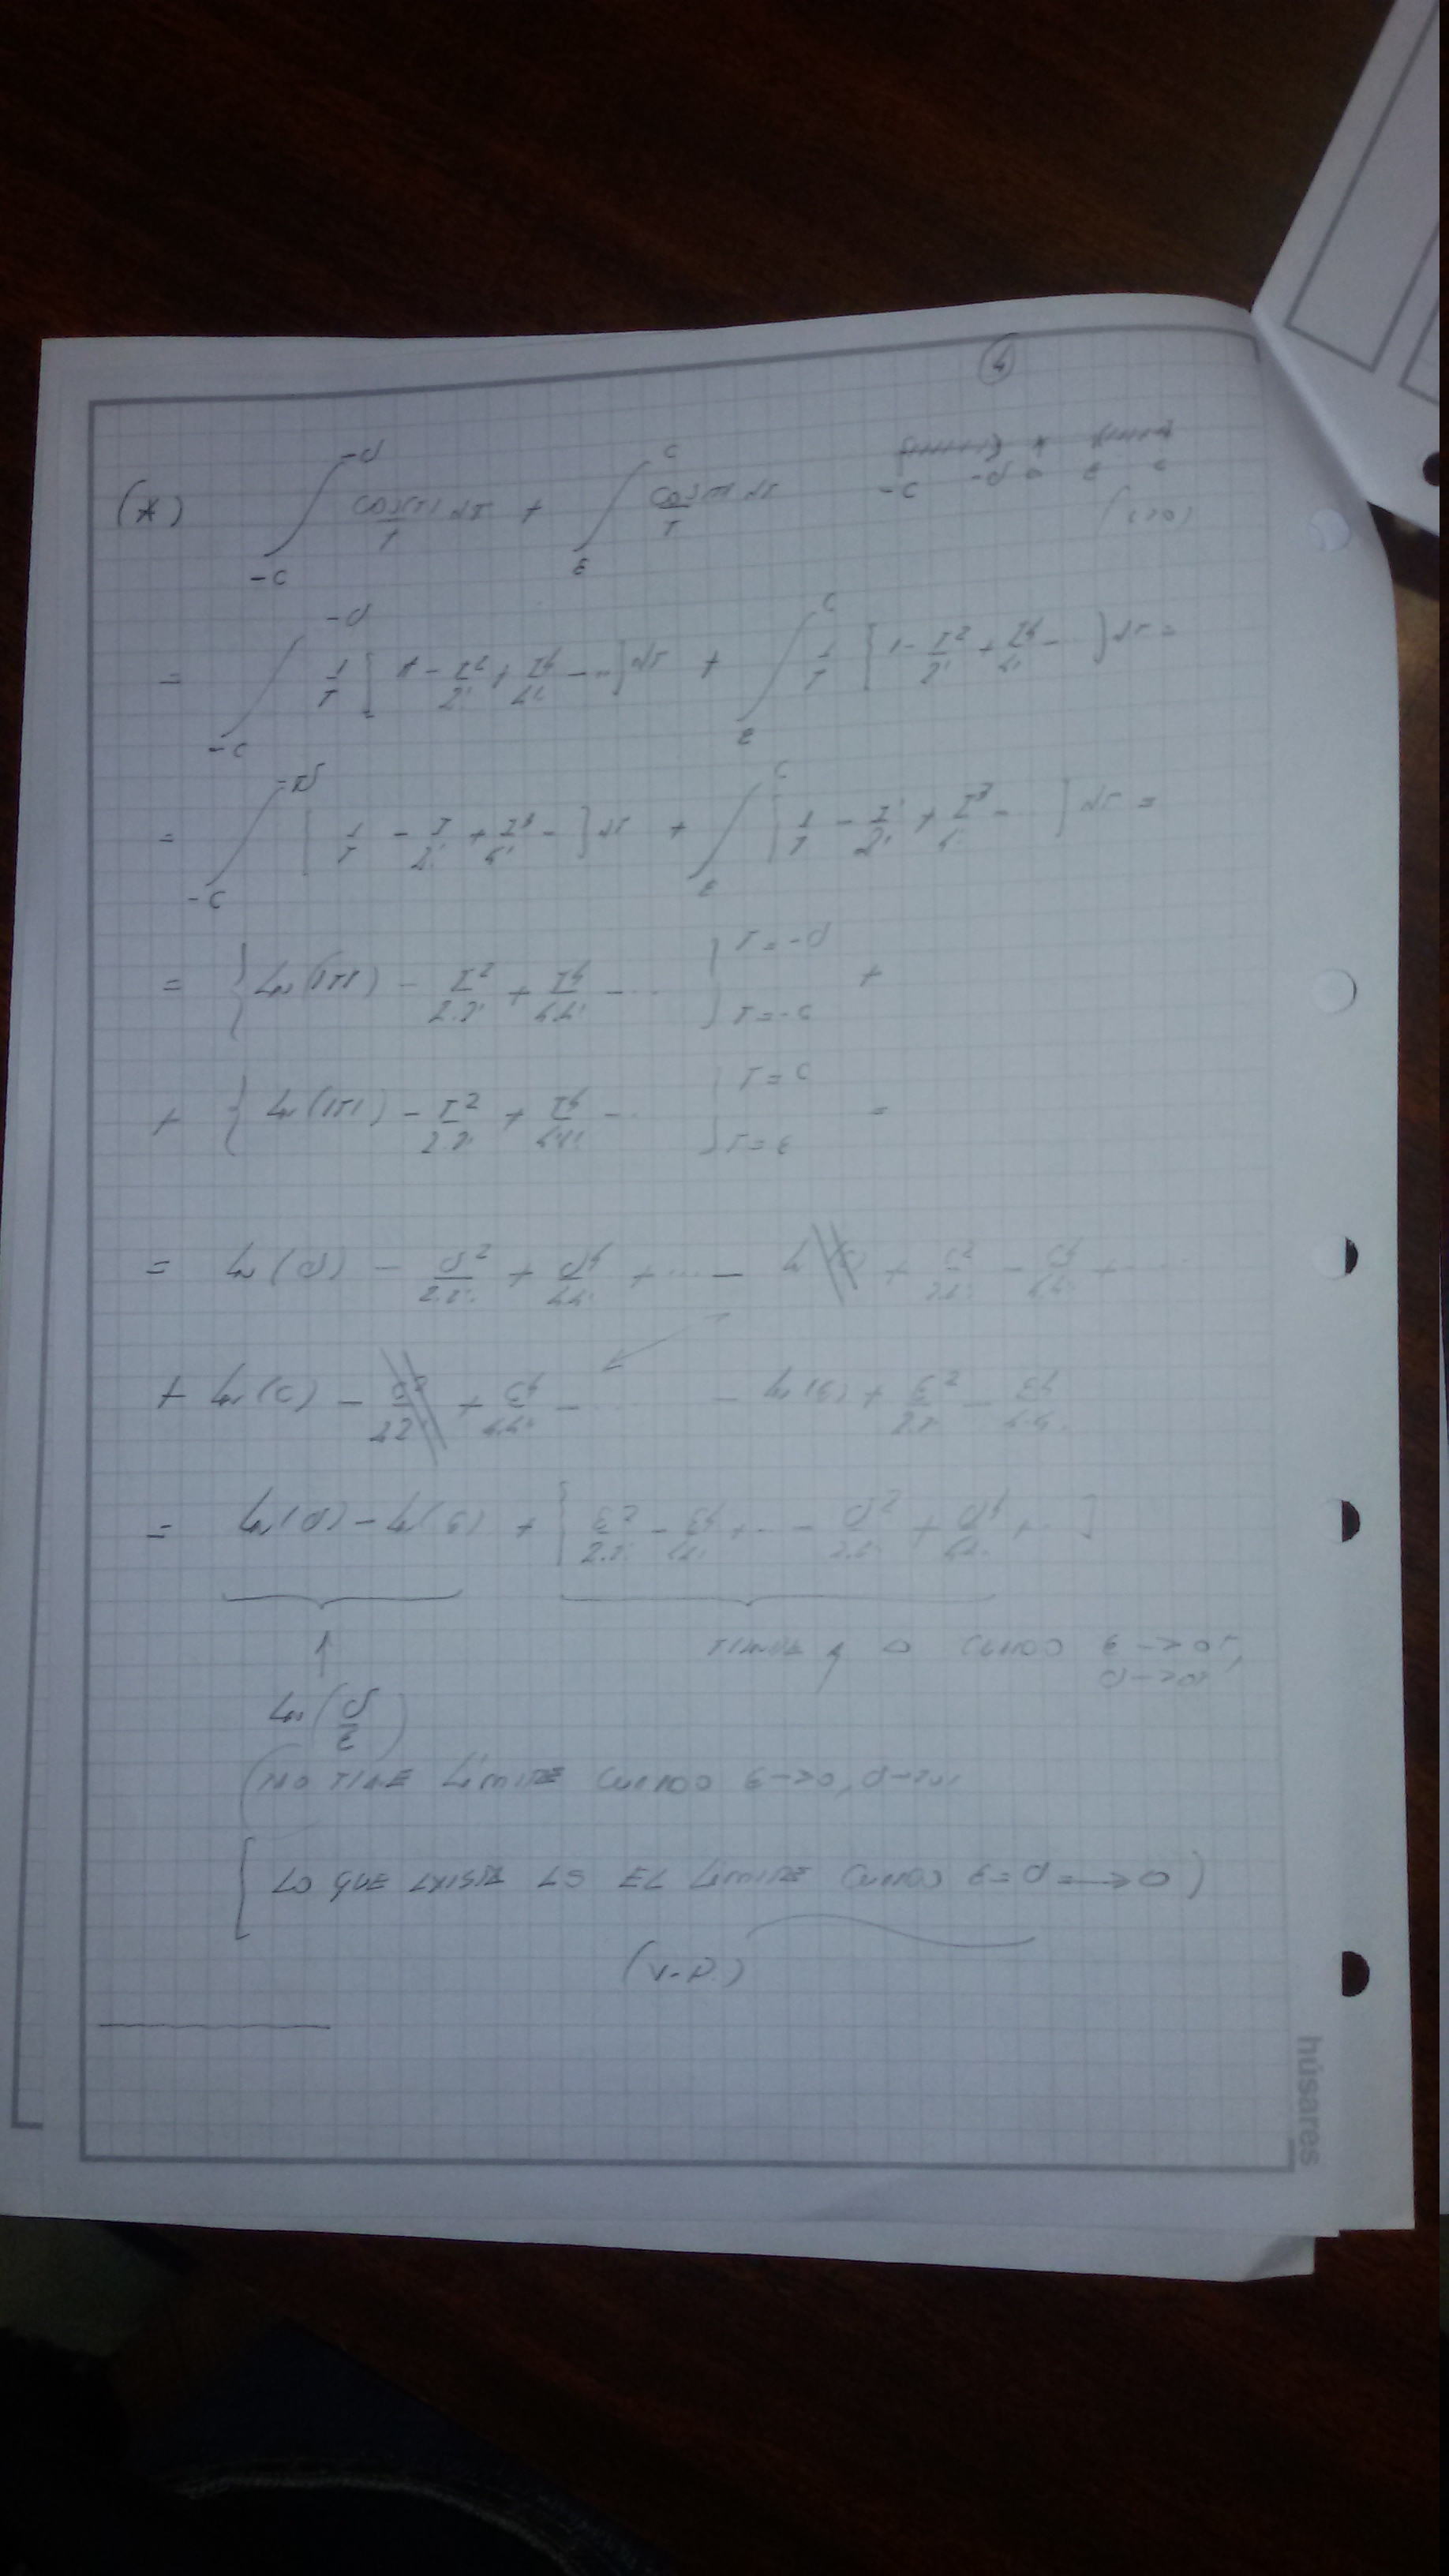 ④
-c -δ 0 ε c
(>0)
(*) ∫_{-c}^{-δ} cos(t)/t dt + ∫_{ε}^{c} cos(t)/t dt
= ∫_{-c}^{-δ} 1/t [1 - t²/2! + t⁴/4! - ...] dt + ∫_{ε}^{c} 1/t [1 - t²/2! + t⁴/4! - ...] dt =
= ∫_{-c}^{-δ} [1/t - t/2! + t³/4! - ] dt + ∫_{ε}^{c} [1/t - t/2! + t³/4! - ...] dt =
= { Ln(|t|) - t²/2·2! + t⁴/4·4! - ... }_{t=-c}^{t=-δ} +
+ { Ln(|t|) - t²/2·2! + t⁴/4·4! - ... }_{t=ε}^{t=c} =
= Ln(δ) - δ²/2·2! + δ⁴/4·4! + ... - + c²/2·2! - c⁴/4·4! + ...
+ Ln(c) - c²/2·2! + c⁴/4·4! - ... - Ln(ε) + ε²/2·2! - ε⁴/4·4!
= Ln(δ) - Ln(ε) + [ ε²/2·2! - ε⁴/4·4! + ... - δ²/2·2! + δ⁴/4·4! + ... ]
TIENDE A 0 CUANDO ε->0+,
δ->0+
Ln(δ/ε)
(NO TIENE LÍMITE CUANDO ε->0, δ->0+
[LO QUE EXISTE ES EL LÍMITE CUANDO ε=δ->0)
(V.P.)
húsares